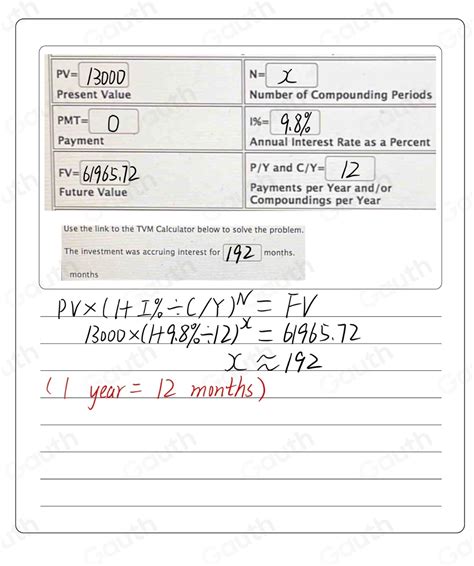 PV= 13000
Present Value
N= x
Number of Compounding Periods
PMT= 0
Payment
I%= 9.8%
Annual Interest Rate as a Percent
FV= 61965.72
Future Value
P/Y and C/Y= 12
Payments per Year and/or
Compoundings per Year
Use the link to the TVM Calculator below to solve the problem.
The investment was accruing interest for 192 months.
months
PV×(1+I%÷C/Y)^N = FV
13000×(1+9.8%÷12)^x = 61965.72
x ≈ 192
(1 year = 12 months)
Gauth